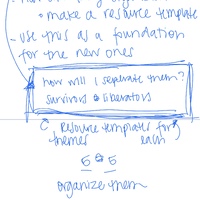 • make a resource template
- use this as a foundation
for the new ones
how will I seperate them?
survivors & liberators
resource templates for
themes each
5 & 5
organize them